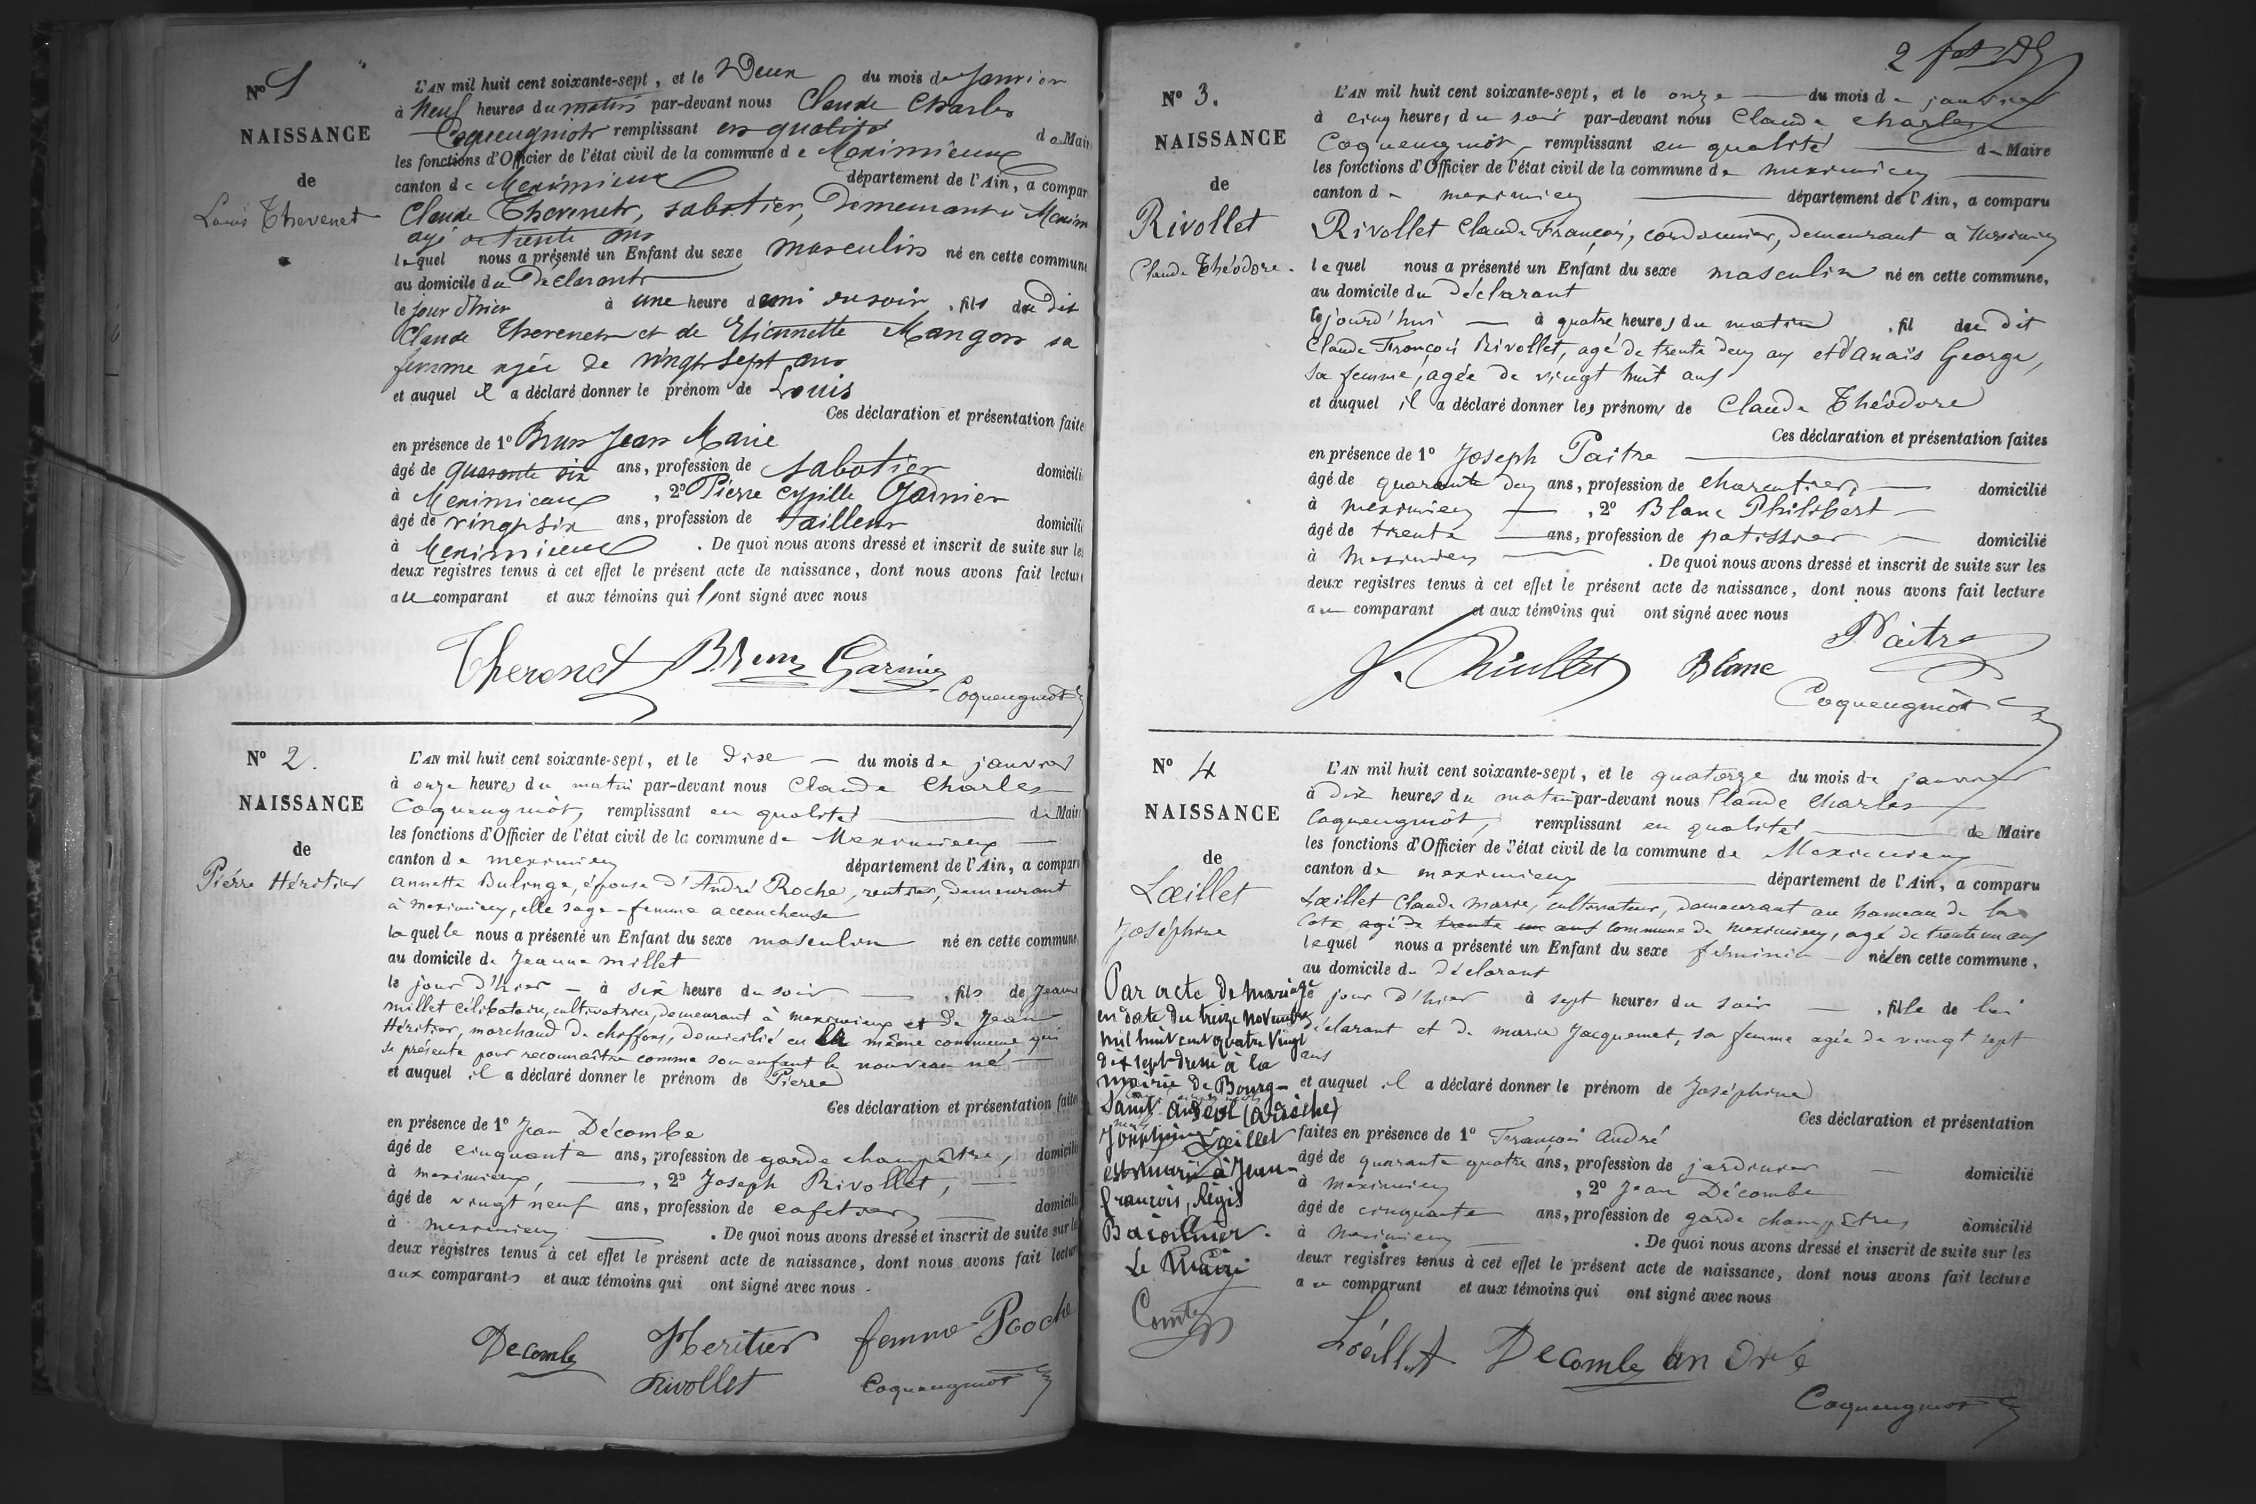 Nº 1
NAISSANCE
de
Louis Thevenet
L'AN mil huit cent soixante-sept, et le Deux du mois de Janvier
à Neuf heures du matin par-devant nous Claude Charles
Coqueugniot remplissant en qualité de Mair
les fonctions d'Officier de l'état civil de la commune de Meximieux
canton de Meximieux département de l'Ain, a compar
Claude Thevenet, sabotier, Demeurant à Mexim
agé de trente ans
lequel nous a présenté un Enfant du sexe masculin né en cette commune
au domicile du Déclarant
le jour d'hier à une heure demi du soir, fils du Dit
Claude Thevenet et de Etiennette Mangon sa
femme agée de vingt sept ans
et auquel il a déclaré donner le prénom de Louis
Ces déclaration et présentation faite
en présence de 1º Brun Jean Marie
âgé de quarante six ans, profession de sabotier domicili
à Meximieux, 2º Pierre Cyrille Garnier
âgé de vingt six ans, profession de tailleur domicilié
à Meximieux. De quoi nous avons dressé et inscrit de suite sur les
deux registres tenus à cet effet le présent acte de naissance, dont nous avons fait lecture
au comparant et aux témoins qui ont signé avec nous
Thevenet Brun Garnier
Coqueugniot
Nº 2.
NAISSANCE
de
Pierre Héritier
L'AN mil huit cent soixante-sept, et le Dix du mois de janvier
à onze heures du matin par-devant nous Claude Charles
Coqueugniot, remplissant en qualité de Mair
les fonctions d'Officier de l'état civil de la commune de Meximieux
canton de meximieux département de l'Ain, a comparu
annette Bulinge, épouse d'André Roche, rentier, demeurant
à meximieux, elle sage-femme accoucheuse
laquelle nous a présenté un Enfant du sexe masculin né en cette commune,
au domicile de Jeanne Millet
le jour d'hier à six heure du soir, fils de Jeanne
Millet célibataire, cultivatrice, demeurant à meximieux et de Jean
Héritier, marchand de chiffons, domicilié en la même commune qui
se présente pour reconnaître comme son enfant le nouveau né
et auquel il a déclaré donner le prénom de Pierre
Ces déclaration et présentation faites
en présence de 1º Jean Décombe
âgé de cinquante ans, profession de garde champêtre, domicilié
à meximieux, 2º Joseph Rivollet,
âgé de vingt neuf ans, profession de cafetier domicilié
à meximieux. De quoi nous avons dressé et inscrit de suite sur les
deux registres tenus à cet effet le présent acte de naissance, dont nous avons fait lecture
aux comparants et aux témoins qui ont signé avec nous.
Decombe Heritier femme Roche
Rivollet Coqueugniot
2
Nº 3.
NAISSANCE
de
Rivollet
Claude Théodore.
L'AN mil huit cent soixante-sept, et le onze du mois de janvier
à cinq heures du soir par-devant nous Claude Charles
Coqueugniot, remplissant en qualité de Maire
les fonctions d'Officier de l'état civil de la commune de meximieux
canton de meximieux département de l'Ain, a comparu
Rivollet Claude François, cordonnier, demeurant à Meximieux
lequel nous a présenté un Enfant du sexe masculin né en cette commune,
au domicile du déclarant
cejourd'hui à quatre heures du matin, fil du dit
Claude François Rivollet, agé de trente deux ans et d'Anaïs George,
sa femme, agée de vingt huit ans
et auquel il a déclaré donner les prénoms de Claude Théodore
Ces déclaration et présentation faites
en présence de 1º Joseph Paitre
âgé de quarante deux ans, profession de charpentier, domicilié
à meximieux, 2º Blanc Philibert
âgé de trente ans, profession de patissier domicilié
à Meximieux. De quoi nous avons dressé et inscrit de suite sur les
deux registres tenus à cet effet le présent acte de naissance, dont nous avons fait lecture
au comparant et aux témoins qui ont signé avec nous
Paitre
Blanc
Coqueugniot
Nº 4
NAISSANCE
de
Lœillet
Joséphine
Par acte de mariage
en date du treize novembre
mil huit cent quatre vingt
dix sept dressé à la
mairie de Bourg-
Saint andéol (ardèche)
Joséphine Lœillet
est mariée à Jean-
françois, Régis
Bacconnier.
Le Maire
L'AN mil huit cent soixante-sept, et le quatorze du mois de janvier
à dix heures du matin par-devant nous Claude Charles
Coqueugniot, remplissant en qualité de Maire
les fonctions d'Officier de l'état civil de la commune de Meximieux
canton de meximieux département de l'Ain, a comparu
Lœillet Claude Marie, cultivateur, demeurant au hameau de la
Cote agé de trente un ans commune de meximieux, agé de trente un ans
lequel nous a présenté un Enfant du sexe féminin née en cette commune,
au domicile du déclarant
le jour d'hier à sept heures du soir, fille de lui
déclarant et de marie Jacquemet, sa femme agée de vingt sept
ans
et auquel il a déclaré donner le prénom de Joséphine
Ces déclaration et présentation
faites en présence de 1º François André
âgé de quarante quatre ans, profession de jardinier domicilié
à Meximieux, 2º Jean Décombe
âgé de cinquante ans, profession de garde champêtre domicilié
à Meximieux. De quoi nous avons dressé et inscrit de suite sur les
deux registres tenus à cet effet le présent acte de naissance, dont nous avons fait lecture
au comparant et aux témoins qui ont signé avec nous
Loéillet Decombe andré
Coqueugniot